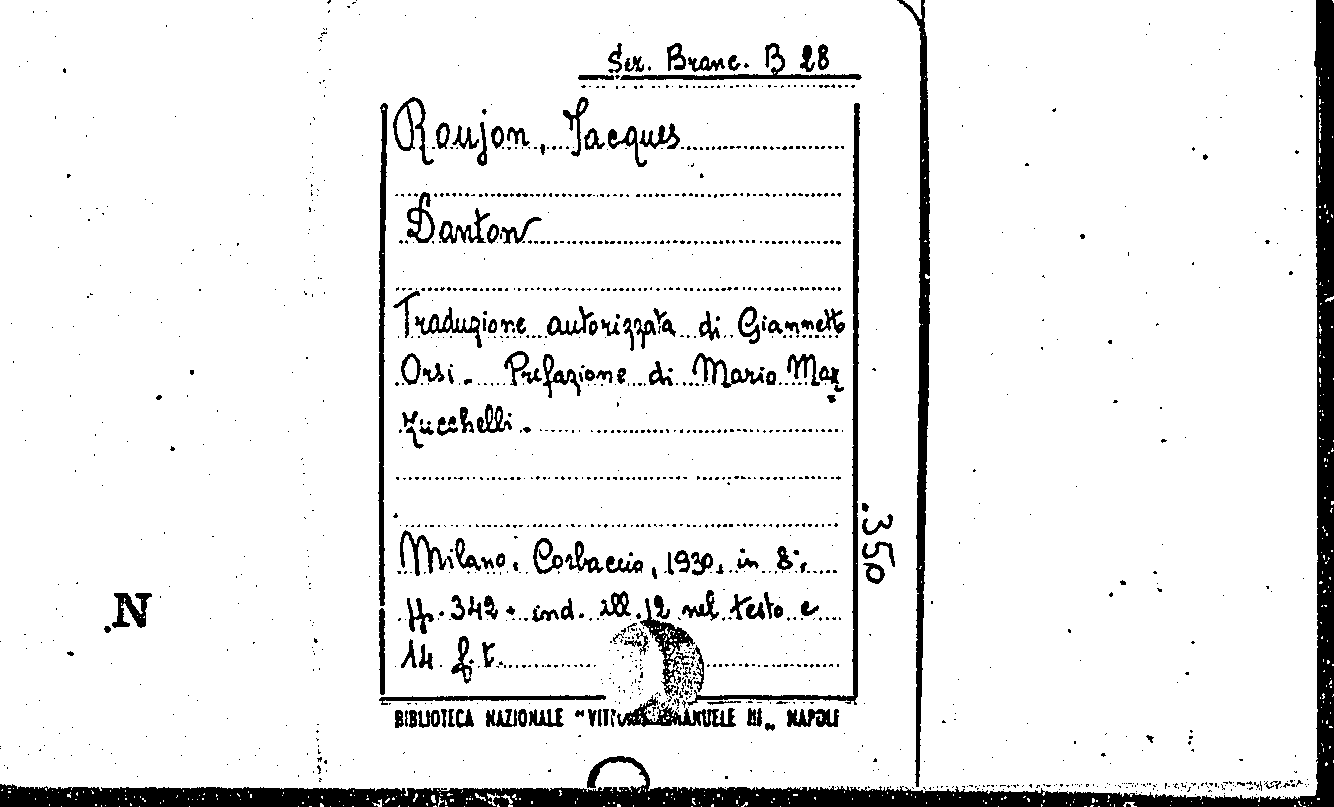 Sez. Branc. B 28
Roujon, Jacques
Danton
Traduzione autorizzata di Giannetto
Orsi. Prefazione di Mario Maz=
zucchelli.
Milano. Corbaccio, 1930, in 8°,
pp. 342. ind. ill. 12 nel testo e
14 f. t.
350
.N
BIBLIOTECA NAZIONALE "VITTORIO EMANUELE III„ NAPOLI